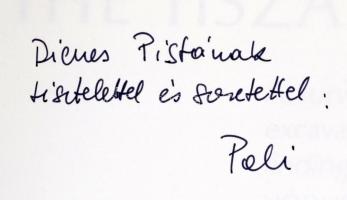 THE TISZA
Dienes Pistának
tisztelettel és szeretettel:
excava
Pali